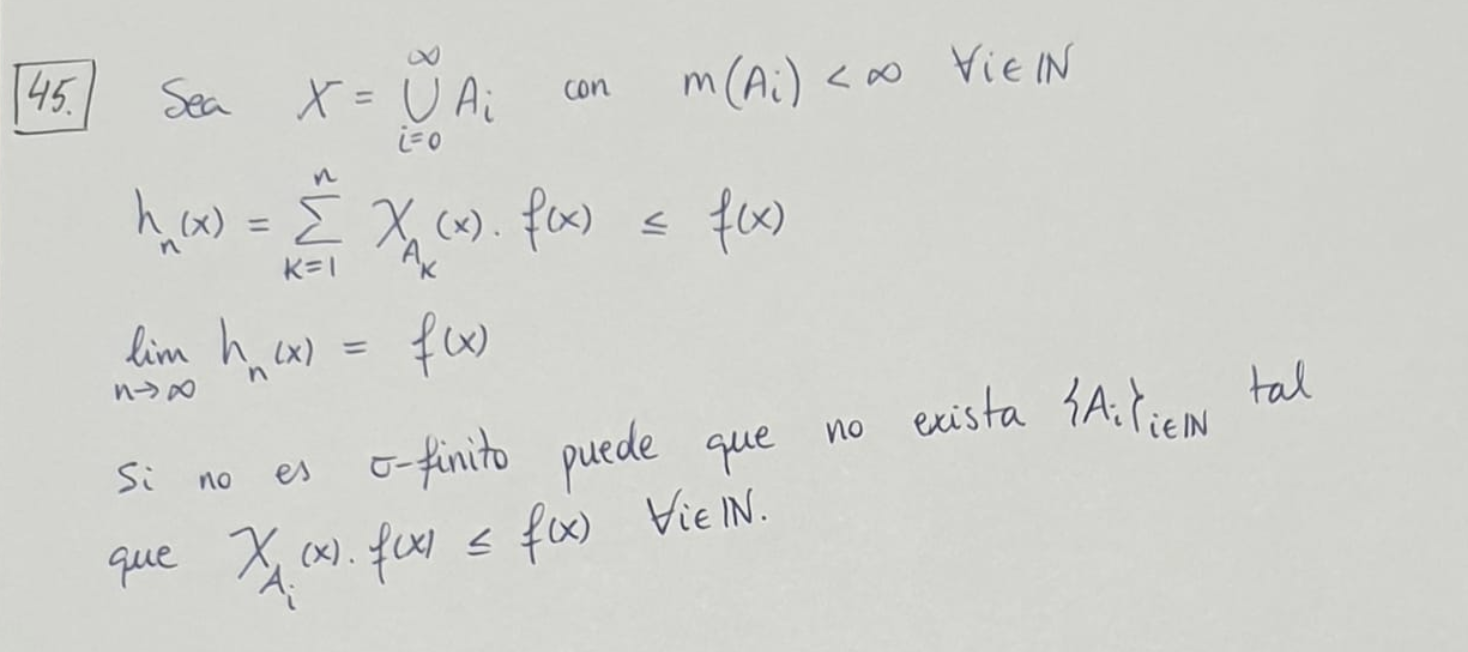 45. Sea X = ⋃_{i=0}^{∞} A_i con m(A_i) < ∞ ∀i∈ℕ
h_n(x) = ∑_{K=1}^{n} χ_{A_K}(x) · f(x) ≤ f(x)
lim_{n→∞} h_n(x) = f(x)
Si no es σ-finito puede que no exista {A_i}_{i∈ℕ} tal
que χ_{A_i}(x) · f(x) ≤ f(x) ∀i∈ℕ.